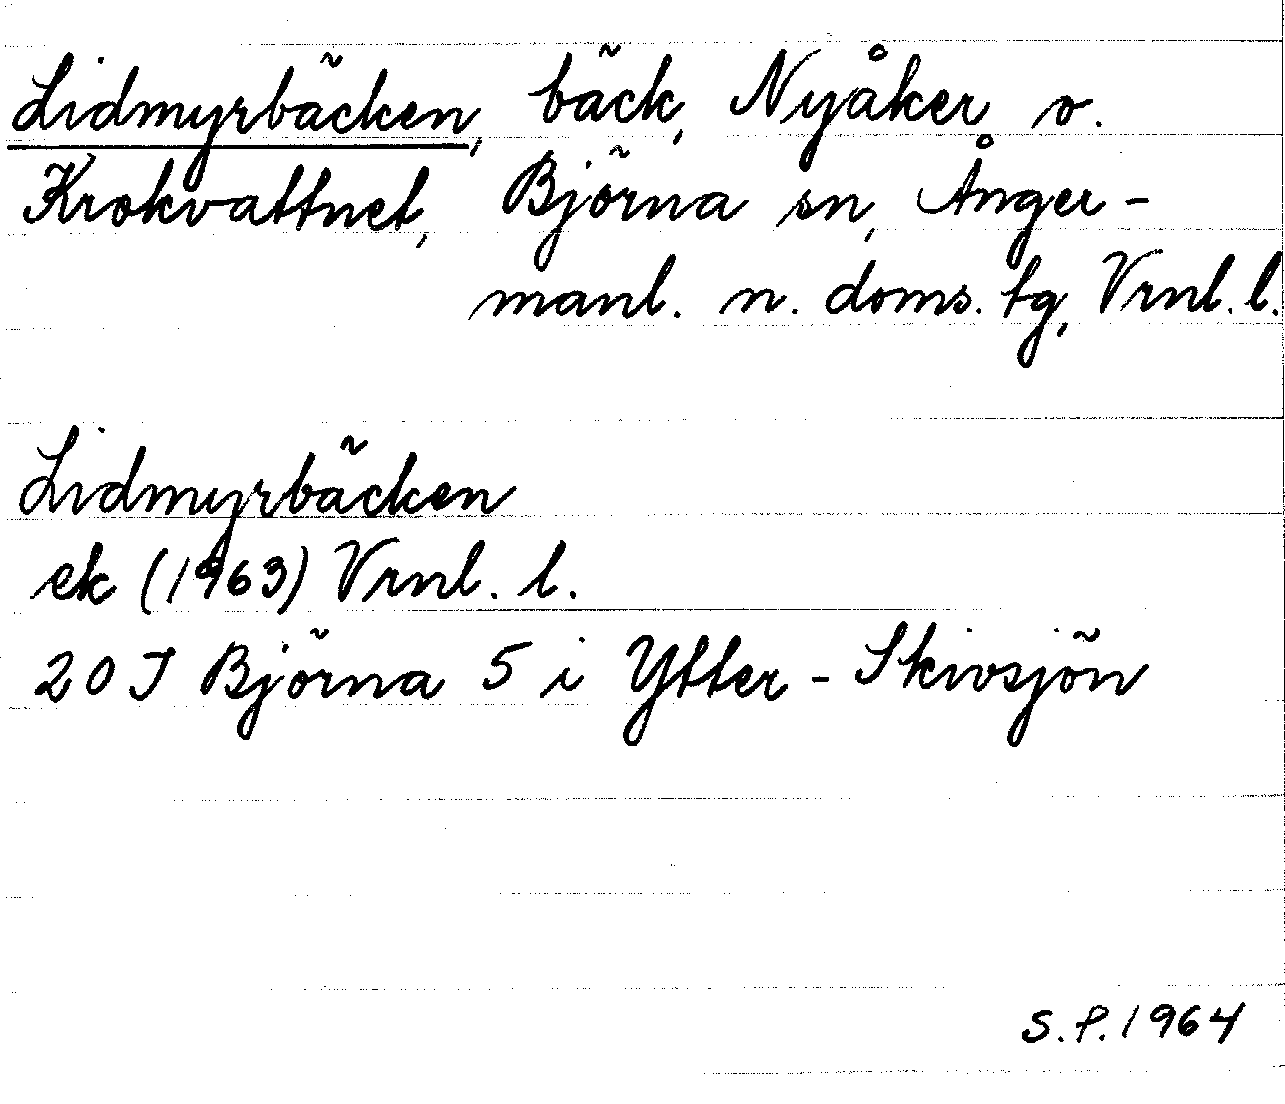 Lidmyrbäcken, bäck, Nyåker o.
Krokvattnet, Björna sn, Ånger-
manl. n. doms. tg, Vrnl. l.
Lidmyrbäcken
ek (1963) Vrnl. l.
20 J Björna 5 i Ytter-Skivsjön
S.P. 1964